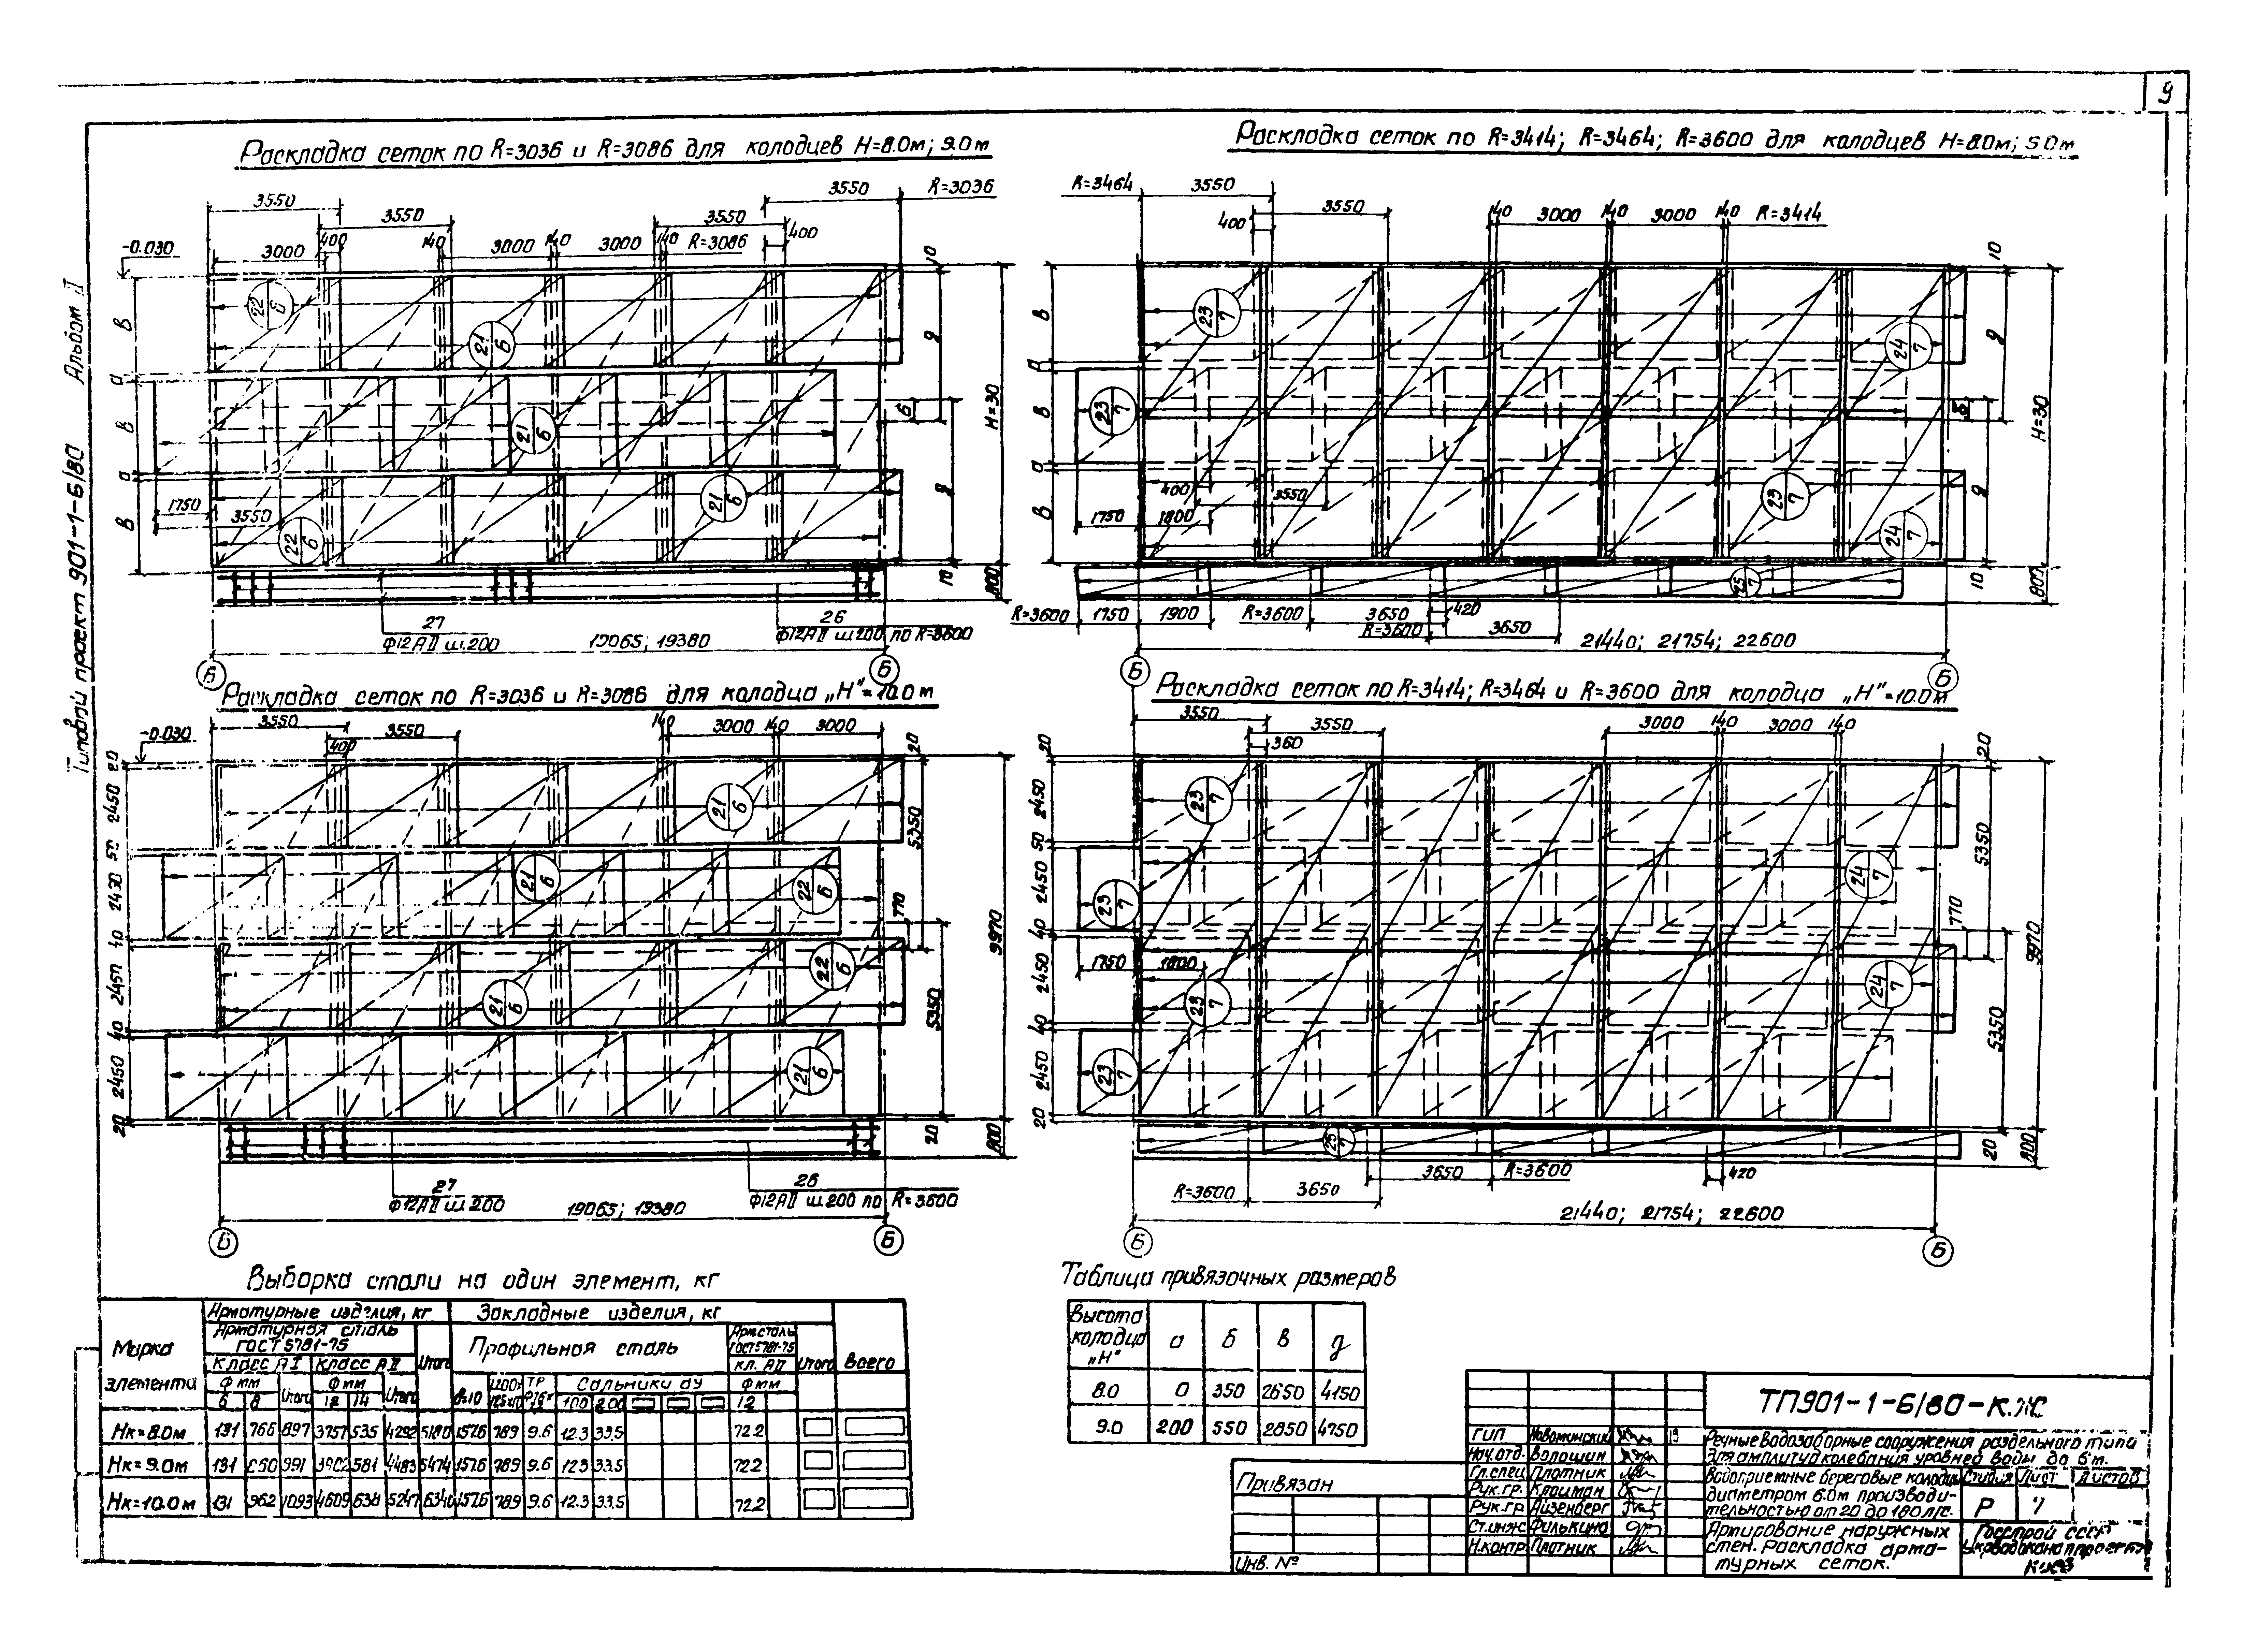 9
Типовой проект 901-1-6/80 Альбом II
Раскладка сеток по R=3036 и R=3086 для колодцев H=8.0м; 9.0м
3550 R=3036
3550 3550 3550
400 140 140 140 R=3086 400
-0.030 3000 3000 3000 10
22/6 21/6
в а в а в
21/6
д б H-30
21/6 22/6
1750 3550 д
10 800
27 26
Ф12АII ш.200 19065; 19380 Ф12АII ш.200 по R=3600
Б Б
Раскладка сеток по R=3414; R=3464; R=3600 для колодцев H=8.0м; 9.0м
R=3464 3550
3550 140 3000 140 3000 140 R=3414
400 10
23/7 24/7
в а в а в
23/7
д б H-30
400 3550 23/7
1750 1800 24/7 д
25/7 10 800
R=3600 1750 1900 R=3600 3650 420
R=3600 3650
21440; 21754; 22600
Б Б
Раскладка сеток по R=3036 и R=3086 для колодца „Н"=10.0м
3550 3550 140 3000 140 3000
-0.030 400 20
20 2450 50 2450 40 2450 40 2450 20
21/6
21/6 22/6
22/6
21/6
21/6
5350 770 5350 9970
20 800
27 26
Ф12АII ш.200 19065; 19380 Ф12АII ш.200 по R=3600
Б Б
Раскладка сеток по R=3414; R=3464 и R=3600 для колодца „Н"=10.0м
3550 3550 3000 140 3000 140
360 20
20 2450 50 2450 40 2450 40 2450 20
23/7
23/7 24/7
1750 1800
23/7 24/7
23/7
25/7
5350 770 5350 9970
20 800
R=3600 3650 3650 R=3600 420
21440; 21754; 22600
Б Б
Выборка стали на один элемент, кг
Марка элемента
Арматурные изделия, кг Закладные изделия, кг
Арматурная сталь ГОСТ 5781-75 Итого Профильная сталь Арм.сталь ГОСТ 5781-75 Итого Всего
Класс АI Класс АII кл. АII
Ф мм Итого Ф мм Итого Сальники ду Ф мм
6 8 12 14 100 200 12
Нк=8.0м 131 766 897 3757 535 4292 5180 157.6 789 9.6 12.3 33.5 72.2
Нк=9.0м 131 991 581 4483 5474 157.6 789 9.6 12.3 33.5 72.2
Нк=10.0м 131 962 1093 4609 638 5247 6340 157.6 789 9.6 12.3 33.5 72.2
Таблица привязочных размеров
Высота колодца „Н" а б в д
8.0 0 350 2650 4150
9.0 200 550 2850 4750
Привязан
Инв. №
ТП901-1-6/80-КЖ
ГИП Новоминский
Нач.отд. Волошин
Гл.спец Плотник
Рук.гр.
Рук.гр Айзенберг
Ст.инж Филькина
Н.контр Плотник
Речные водозаборные сооружения раздельного типа
для амплитуд колебания уровней воды до 6м.
Водоприемные береговые колодцы
диаметром 6.0м производи-
тельностью от 20 до 180 л/с.
Стадия Лист Листов
Р 7
Армирование наружных
стен. Раскладка арма-
турных сеток.
Госстрой СССР
Укрводоканалпроект
Киев